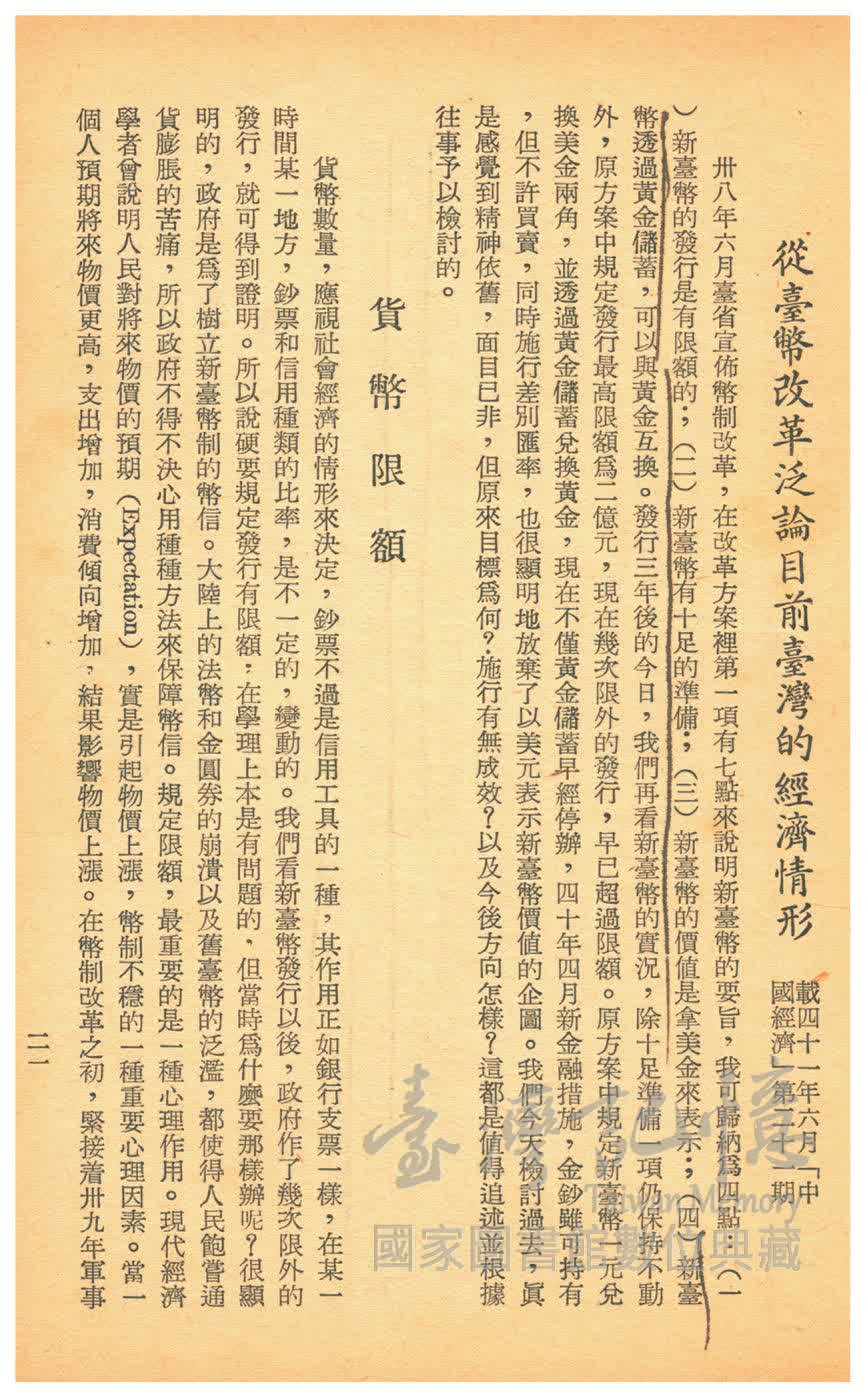 從臺幣改革泛論目前臺灣的經濟情形
載四十一年六月「中
國經濟」第二十一期
卅八年六月臺省宣佈幣制改革，在改革方案裡第一項有七點來說明新臺幣的要旨，我可歸納爲四點：（一
）新臺幣的發行是有限額的；（二）新臺幣有十足的準備；（三）新臺幣的價值是拿美金來表示；（四）新臺
幣透過黃金儲蓄，可以與黃金互換。發行三年後的今日，我們再看新臺幣的實況，除十足準備一項仍保持不動
外，原方案中規定發行最高限額爲二億元，現在幾次限外的發行，早已超過限額。原方案中規定新臺幣一元兌
換美金兩角，並透過黃金儲蓄兌換黃金，現在不僅黃金儲蓄早經停辦，四十年四月新金融措施，金鈔雖可持有
，但不許買賣，同時施行差別匯率，也很顯明地放棄了以美元表示新臺幣價值的企圖。我們今天檢討過去，眞
是感覺到精神依舊，面目已非，但原來目標爲何？施行有無成效？以及今後方向怎樣？這都是值得追述並根據
往事予以檢討的。
貨幣限額
貨幣數量，應視社會經濟的情形來決定，鈔票不過是信用工具的一種，其作用正如銀行支票一樣，在某一
時間某一地方，鈔票和信用種類的比率，是不一定的，變動的。我們看新臺幣發行以後，政府作了幾次限外的
發行，就可得到證明。所以說硬要規定發行有限額，在學理上本是有問題的，但當時爲什麼要那樣辦呢？很顯
明的，政府是爲了樹立新臺幣制的幣信。大陸上的法幣和金圓券的崩潰以及舊臺幣的泛濫，都使得人民飽嘗通
貨膨脹的苦痛，所以政府不得不決心用種種方法來保障幣信。規定限額，最重要的是一種心理作用。現代經濟
學者曾說明人民對將來物價的預期（Expectation），實是引起物價上漲，幣制不穩的一種重要心理因素。當一
個人預期將來物價更高，支出增加，消費傾向增加，結果影響物價上漲。在幣制改革之初，緊接着卅九年軍事
二一
臺灣記憶
Taiwan Memory
國家圖書館數位典藏